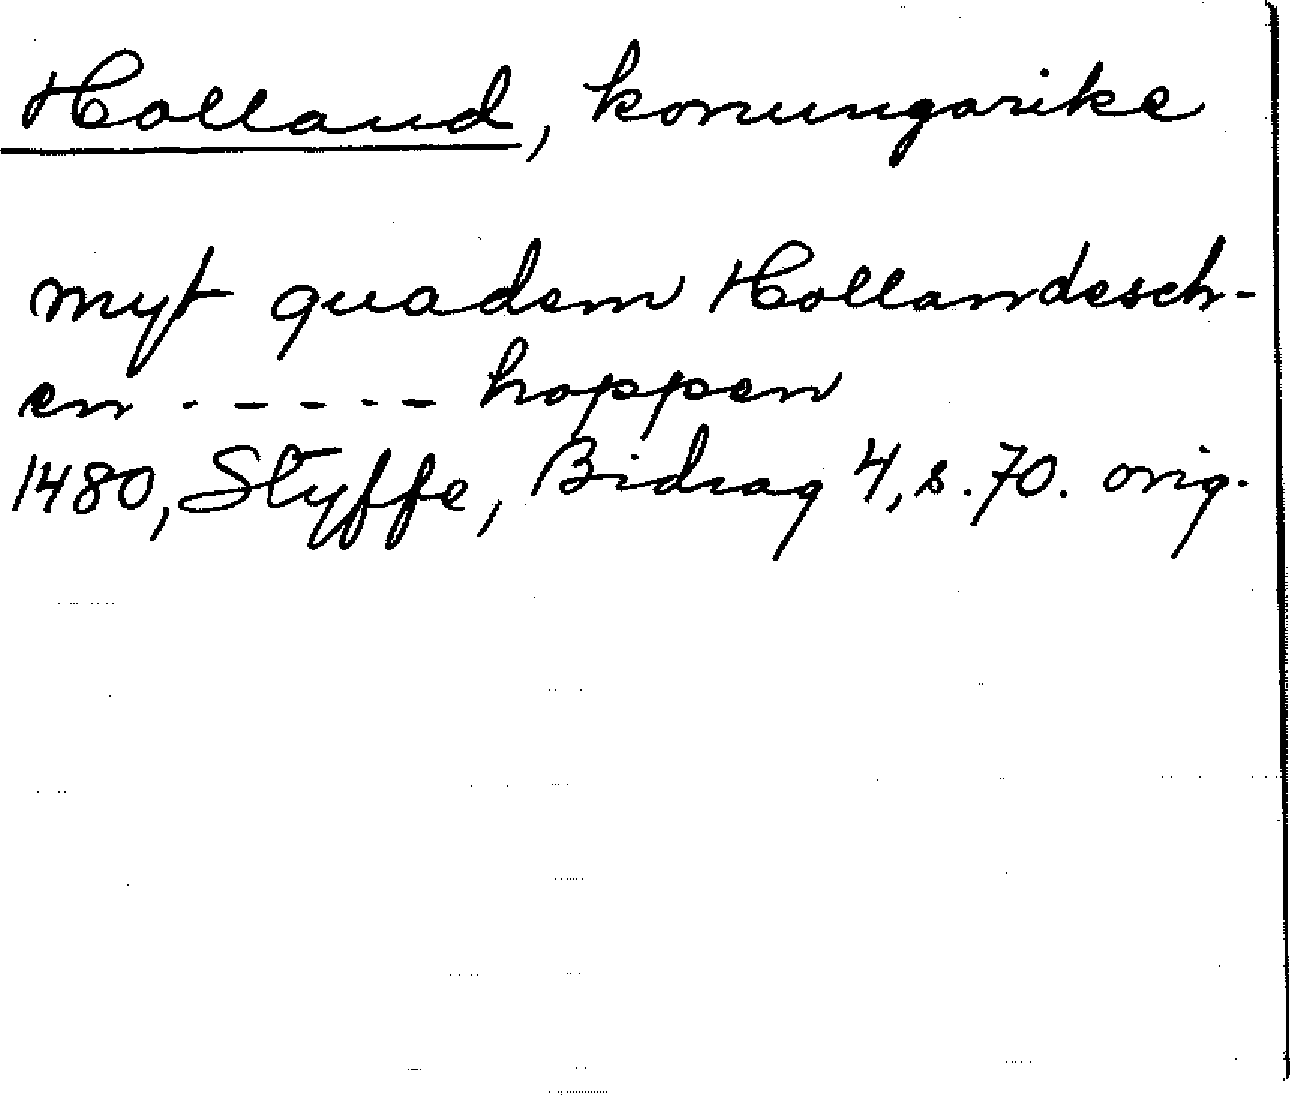 Holland, konungarike
myt quadem Hollandesch-
en - - - - - hoppen
1480, Styffe, Bidrag 4, s. 70. orig.